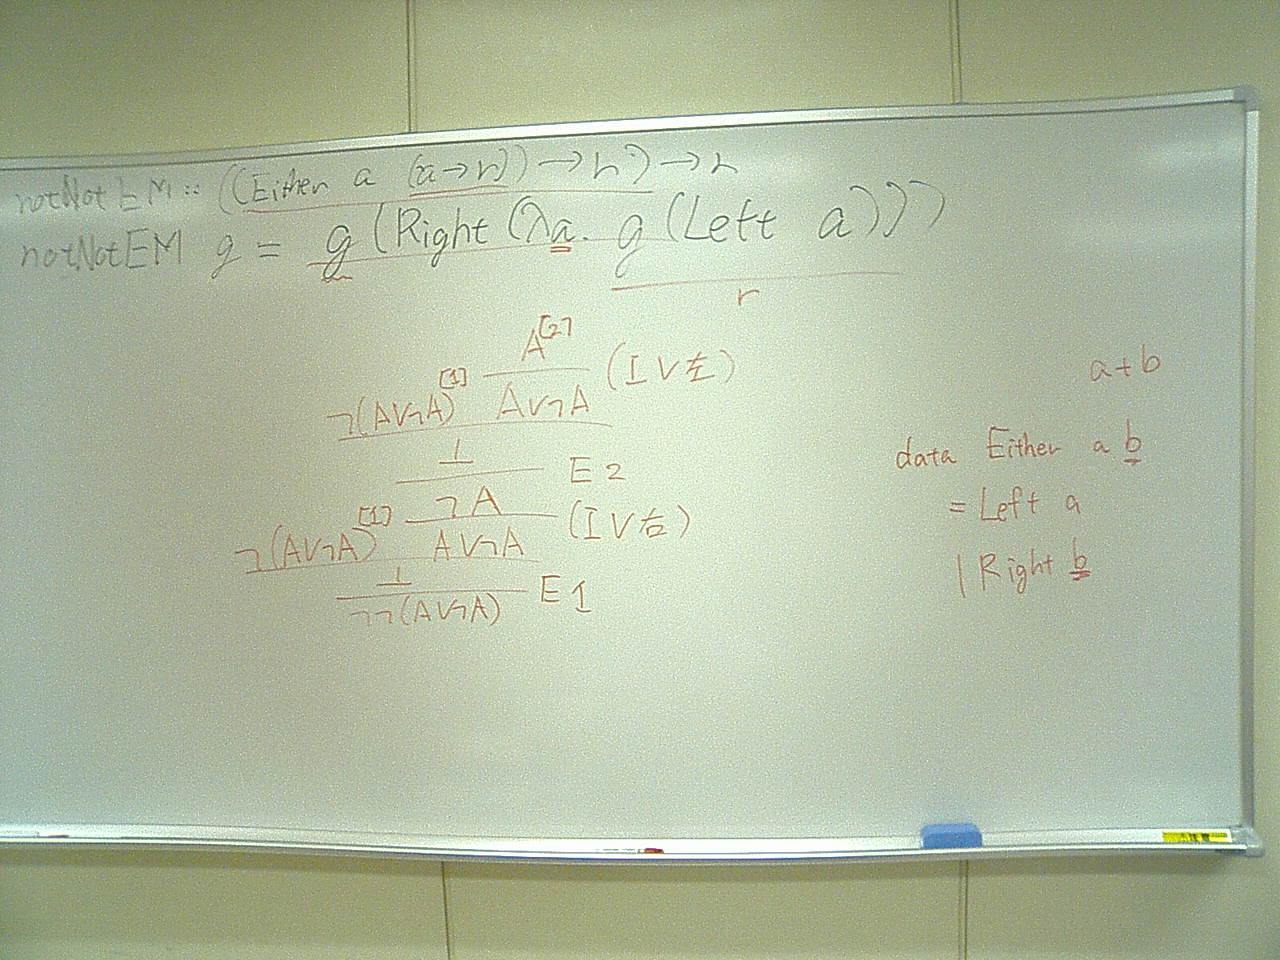 notNotEM :: ((Either a (a→r))→r)→r
notNotEM g = g (Right (λa. g (Left a)))
r
A[2]
¬(A∨¬A)[1] A∨¬A (I∨左)
⊥
¬A E2
¬(A∨¬A)[1] A∨¬A (I∨右)
⊥
¬¬(A∨¬A) E1
a+b
data Either a b
= Left a
| Right b